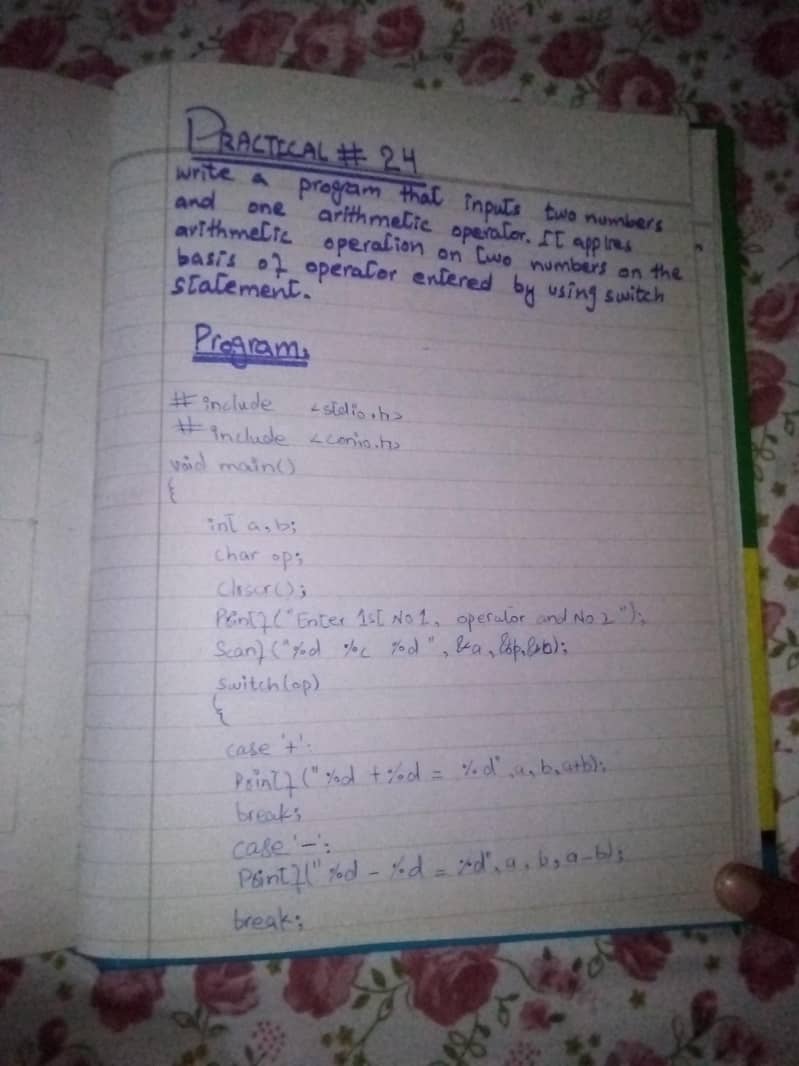 PRACTICAL # 24
write a program that inputs two numbers
and one arithmetic operator. It applies
arithmetic operation on two numbers on the
basis of operator entered by using switch
statement.
Program,
# include <stdio.h>
# include <conio.h>
void main()
{
int a, b;
char op;
clrscr();
Printf("Enter 1st No 1, operator and No 2");
Scanf("%d %c %d", &a, &op, &b);
switch(op)
{
case '+':
Printf("%d + %d = %d", a, b, a+b);
break;
case '-':
Printf("%d - %d = %d", a, b, a-b);
break;